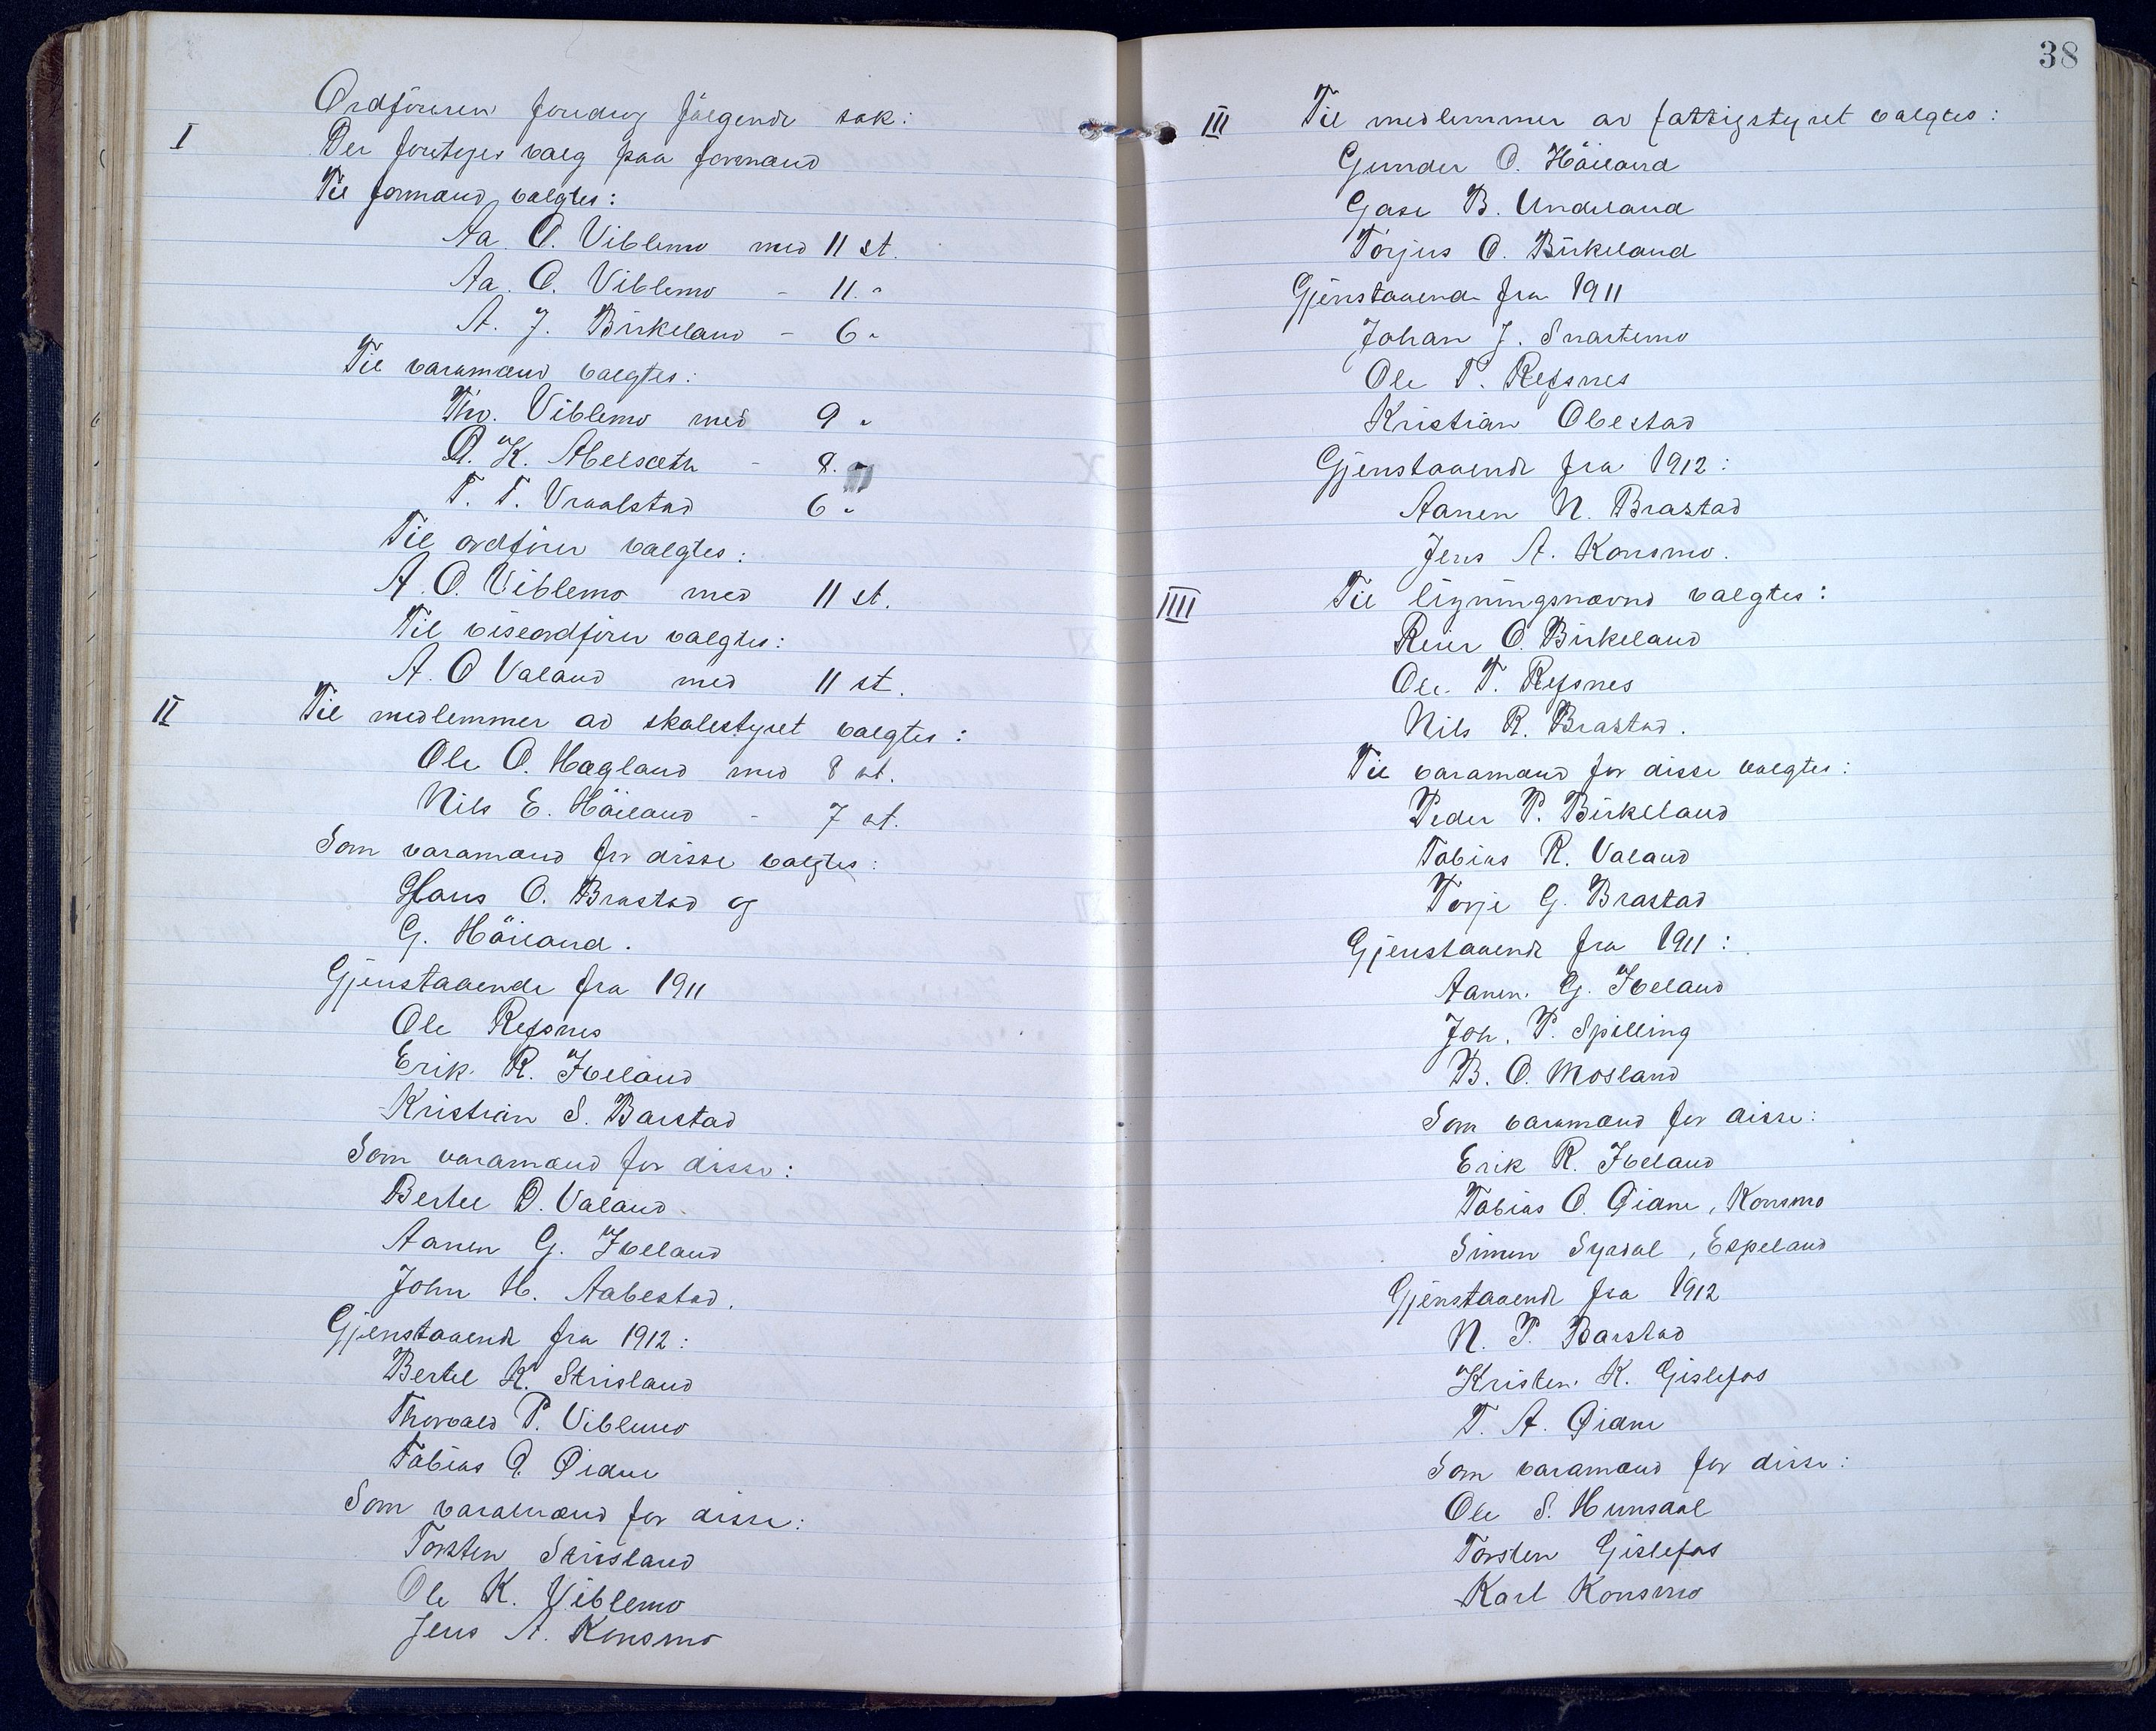 Ordföreren foredrog fölgende sak:
I Der foretages valg paa formænd
Til formænd valgtes:
Aa. O. Viblemo med 11 st.
Aa. O. Viblemo - 11 "
A. J. Birkeland - 6 "
Til varamænd valgtes:
Thv. Viblemo med 9 "
O. K. Abelsæth - 8. "
T. T. Vraalstad 6 "
Til ordförer valgtes:
A. O. Viblemo med 11 st.
Til viseordförer valgtes:
A. O Valand med 11 st.
II Til medlemmer av skolestyret valgtes:
Ole O. Hægland med 8 st.
Nils E. Höiland - 7 st.
Som varamænd for disse valgtes:
Hans O. Brastad og
G. Höiland.
Gjenstaaende fra 1911
Ole Refsnes
Erik R. Iveland
Kristian S. Barstad
Som varamænd for disse:
Bertel O. Valand
Aanen G. Iveland
John H. Aabestad.
Gjenstaaende fra 1912:
Bertel K. Strisland
Thorvald P. Viblemo
Tobias O. Øidne
Som varamænd for disse:
Torsten Strisland
Ole K. Viblemo
Jens A. Konsmo
38
III Til medlemmer av fattigstyret valgtes:
Gunder O. Höiland
Gase B. Undeland
Torjus O. Birkeland
Gjenstaaende fra 1911
Johan J. Snartemo
Ole T. Refsnes
Kristian Obestad
Gjenstaaende fra 1912:
Aanen N. Brastad
Jens A. Konsmo.
IIII Til ligningsnævnd valgtes:
Reier O. Birkeland
Ole T. Refsnes
Nils R. Brastad.
Til varamænd for disse valgtes:
Peder P. Birkeland
Tobias R. Valand
Torje G. Brastad
Gjenstaaende fra 1911:
Aanen G. Iveland
Joh. P. Spilling
B. O. Mosland
Som varamænd for disse:
Erik R. Iveland
Tobias O. Øidne, Konsmo
Simen Syrdal, Espeland
Gjenstaaende fra 1912
N. P. Barstad
Kristen K. Gislefos
T. A. Øidne
Som varamænd for disse:
Ole S. Hunsdal
Torsten Gislefos
Karl Konsmo